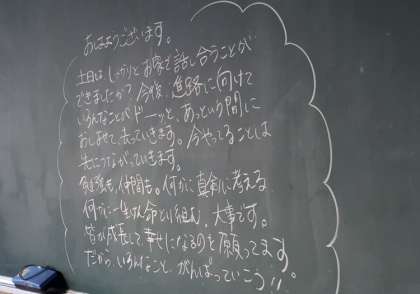 おはようございます。
土日は しっかりと お家で 話し合うことが
できましたか? 今後、進路に向けて
いろんなことが ドーッと、あっという間に
おしよせて、去っていきます。今やってることは
先につながっていきます。
勉強も、仲間も。何かに真剣に考える
何かに一生けん命 とり組む。大事です。
皆が成長して、幸せになるのを願ってます
だから、いろんなこと、がんばっていこう!!